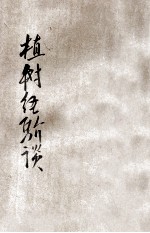 植树经验谈